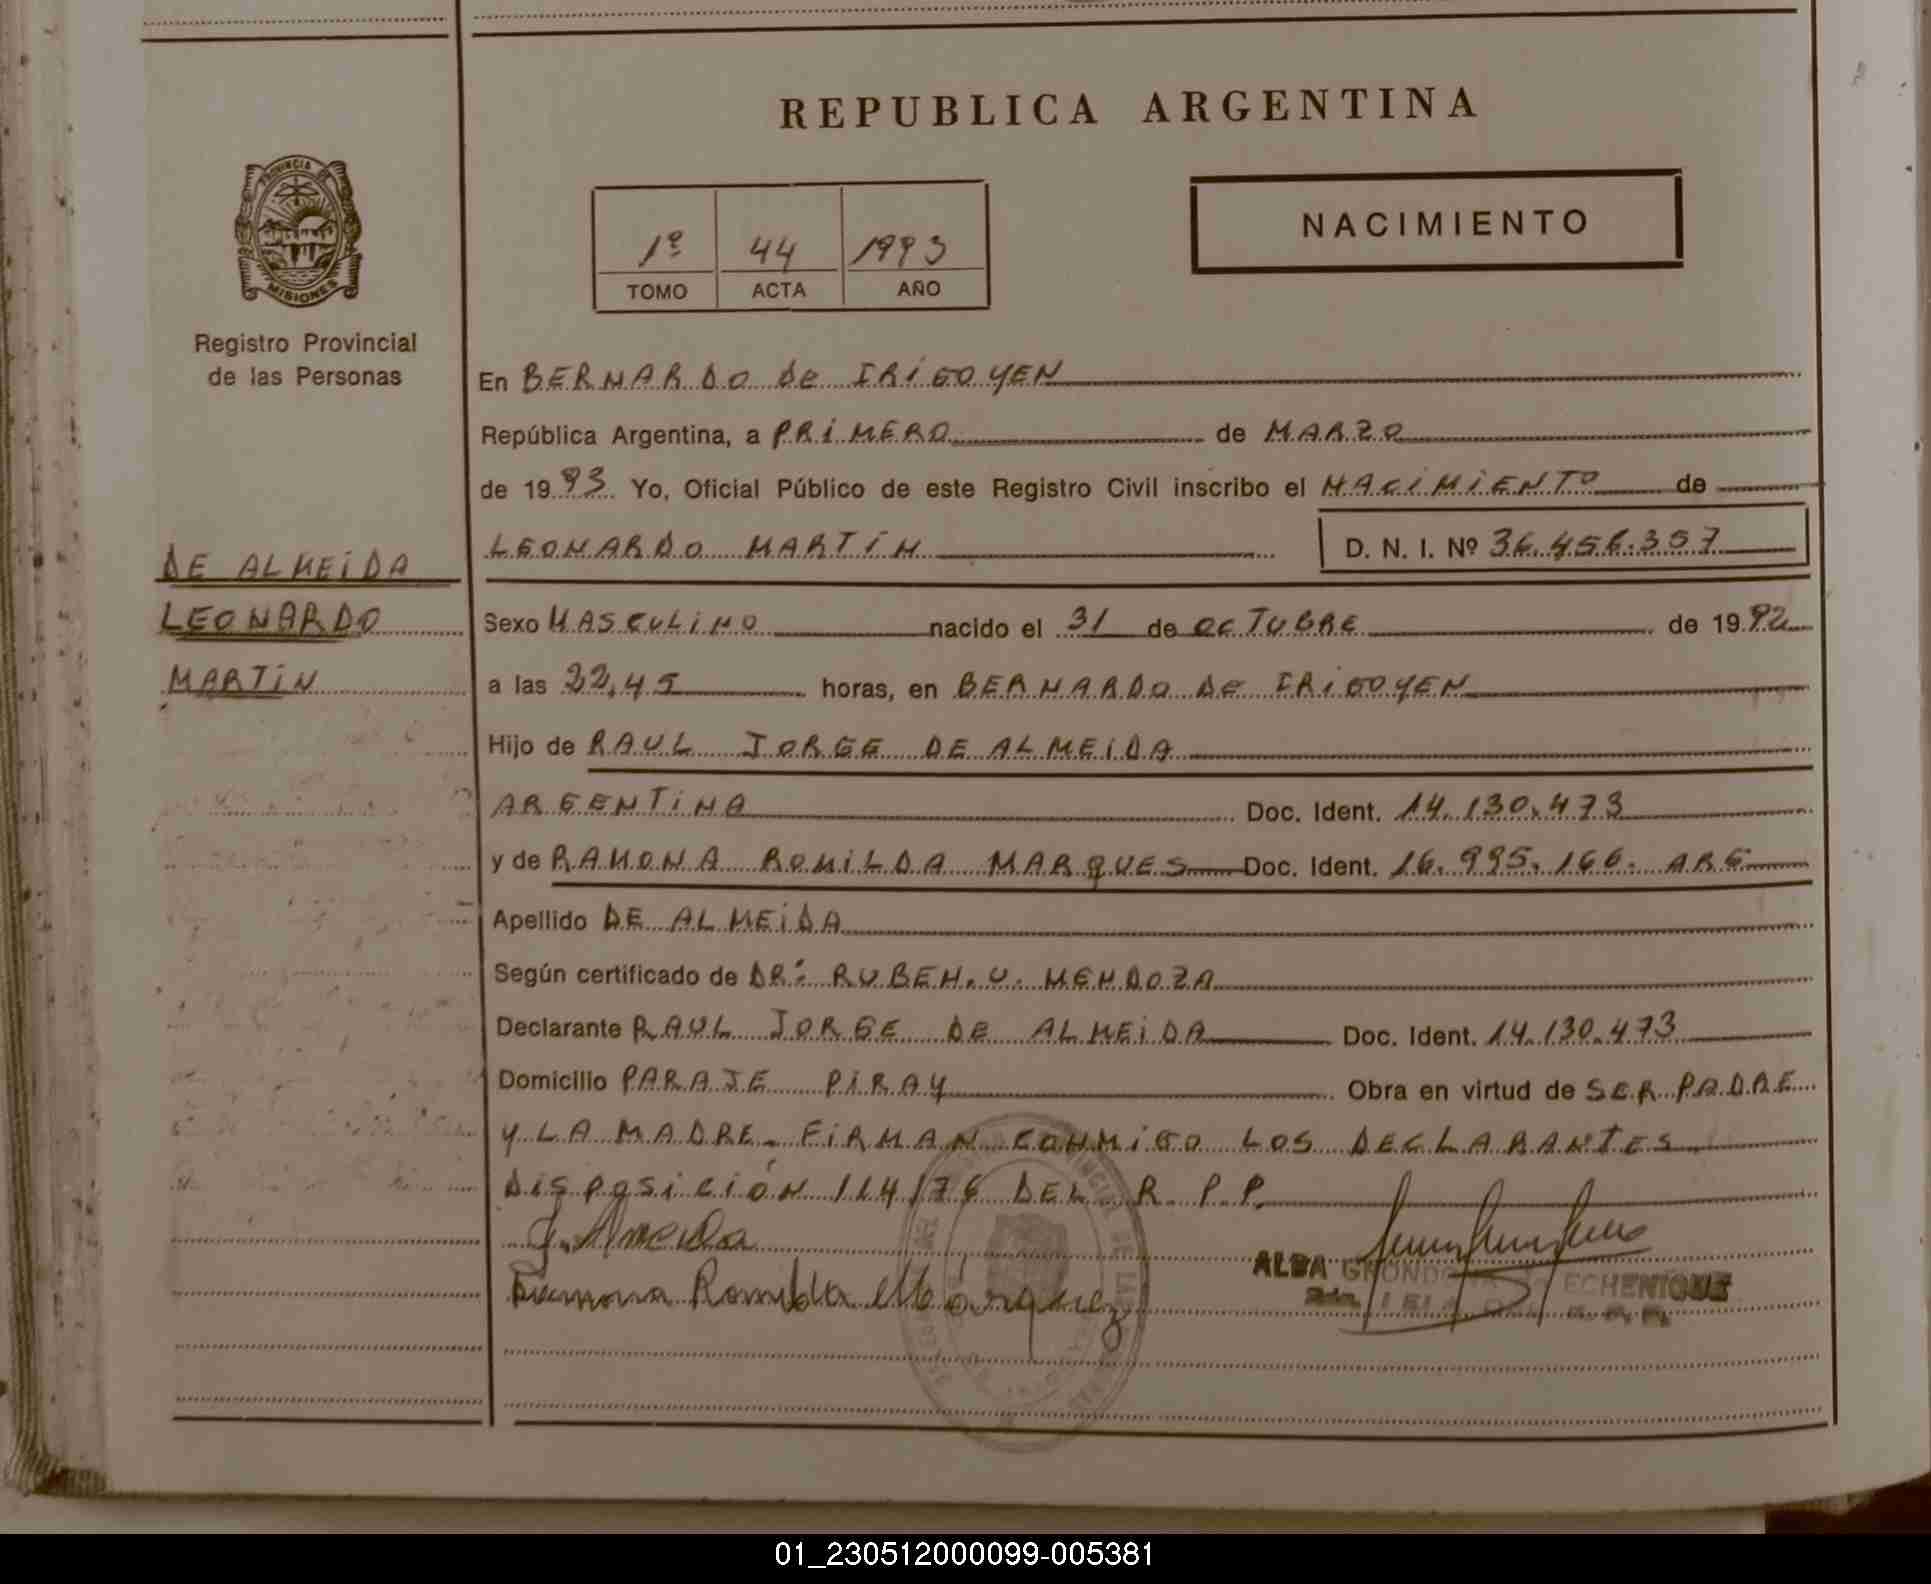 REPUBLICA ARGENTINA
PROVINCIA DE
MISIONES
Registro Provincial
de las Personas
1º 44 1993
TOMO ACTA AÑO
NACIMIENTO
En BERNARDO DE IRIGOYEN
República Argentina, a PRIMERO de MARZO
de 1993. Yo, Oficial Público de este Registro Civil inscribo el NACIMIENTO de
LEONARDO MARTÍN D. N. I. Nº 36.456.357
DE ALMEIDA
LEONARDO
MARTIN
Sexo MASCULINO nacido el 31 de OCTUBRE de 1992
a las 22,45 horas, en BERNARDO DE IRIGOYEN
Hijo de RAUL JORGE DE ALMEIDA
ARGENTINA Doc. Ident. 14.130.473
y de RAMONA ROMILDA MARQUES Doc. Ident. 16.995.166. ARG
Apellido DE ALMEIDA
Según certificado de DR: RUBEN.U. MENDOZA
Declarante RAUL JORGE DE ALMEIDA Doc. Ident. 14.130.473
Domicilio PARAJE PIRAY Obra en virtud de SER PADRE
Y LA MADRE. FIRMAN CONMIGO LOS DECLARANTES
DISPOSICIÓN 114/76 DEL R.P.P.
J. Almeida
Ramona Romilda Márquez
ALBA ECHENIQUE
01_230512000099-005381